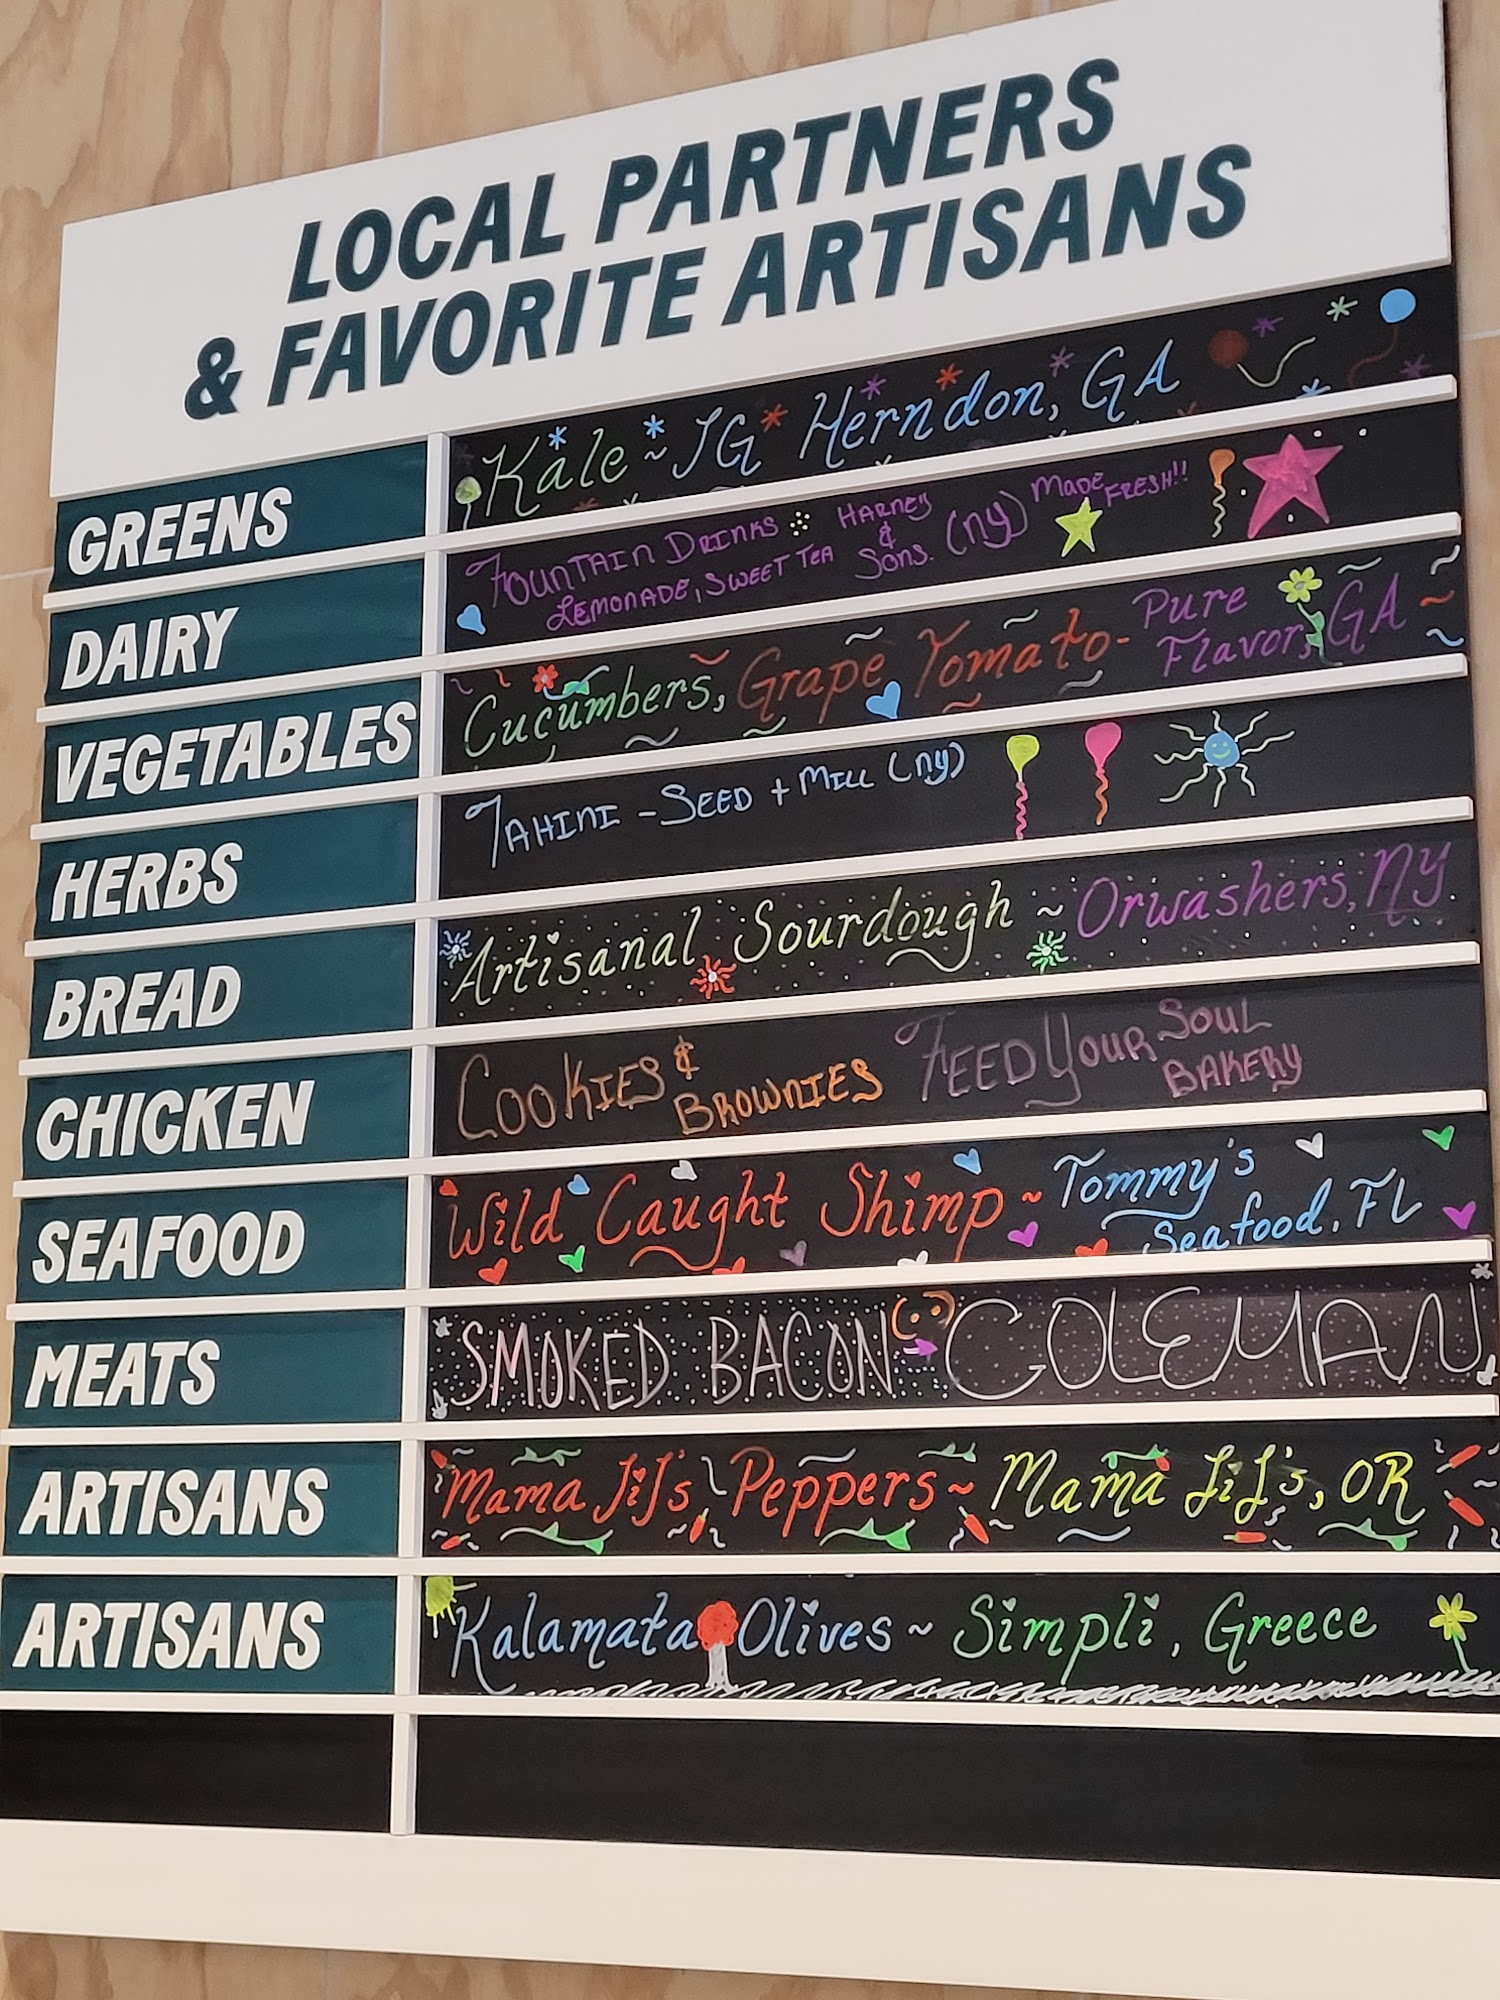 LOCAL PARTNERS
& FAVORITE ARTISANS
GREENS Kale ~ JG Herndon, GA
DAIRY Fountain Drinks Harney & Sons. (NY) Made Fresh!!
Lemonade, Sweet Tea
VEGETABLES Cucumbers, Grape Tomato - Pure Flavor, GA ~
HERBS Tahini - Seed + Mill (NY)
BREAD Artisanal Sourdough ~ Orwashers, NY.
CHICKEN Cookies & Brownies Feed Your Soul Bakery
SEAFOOD Wild Caught Shimp ~ Tommy's Seafood, FL
MEATS SMOKED BACON COLEMAN
ARTISANS Mama JiJ's Peppers ~ Mama LiL's, OR
ARTISANS Kalamata Olives ~ Simpli, Greece